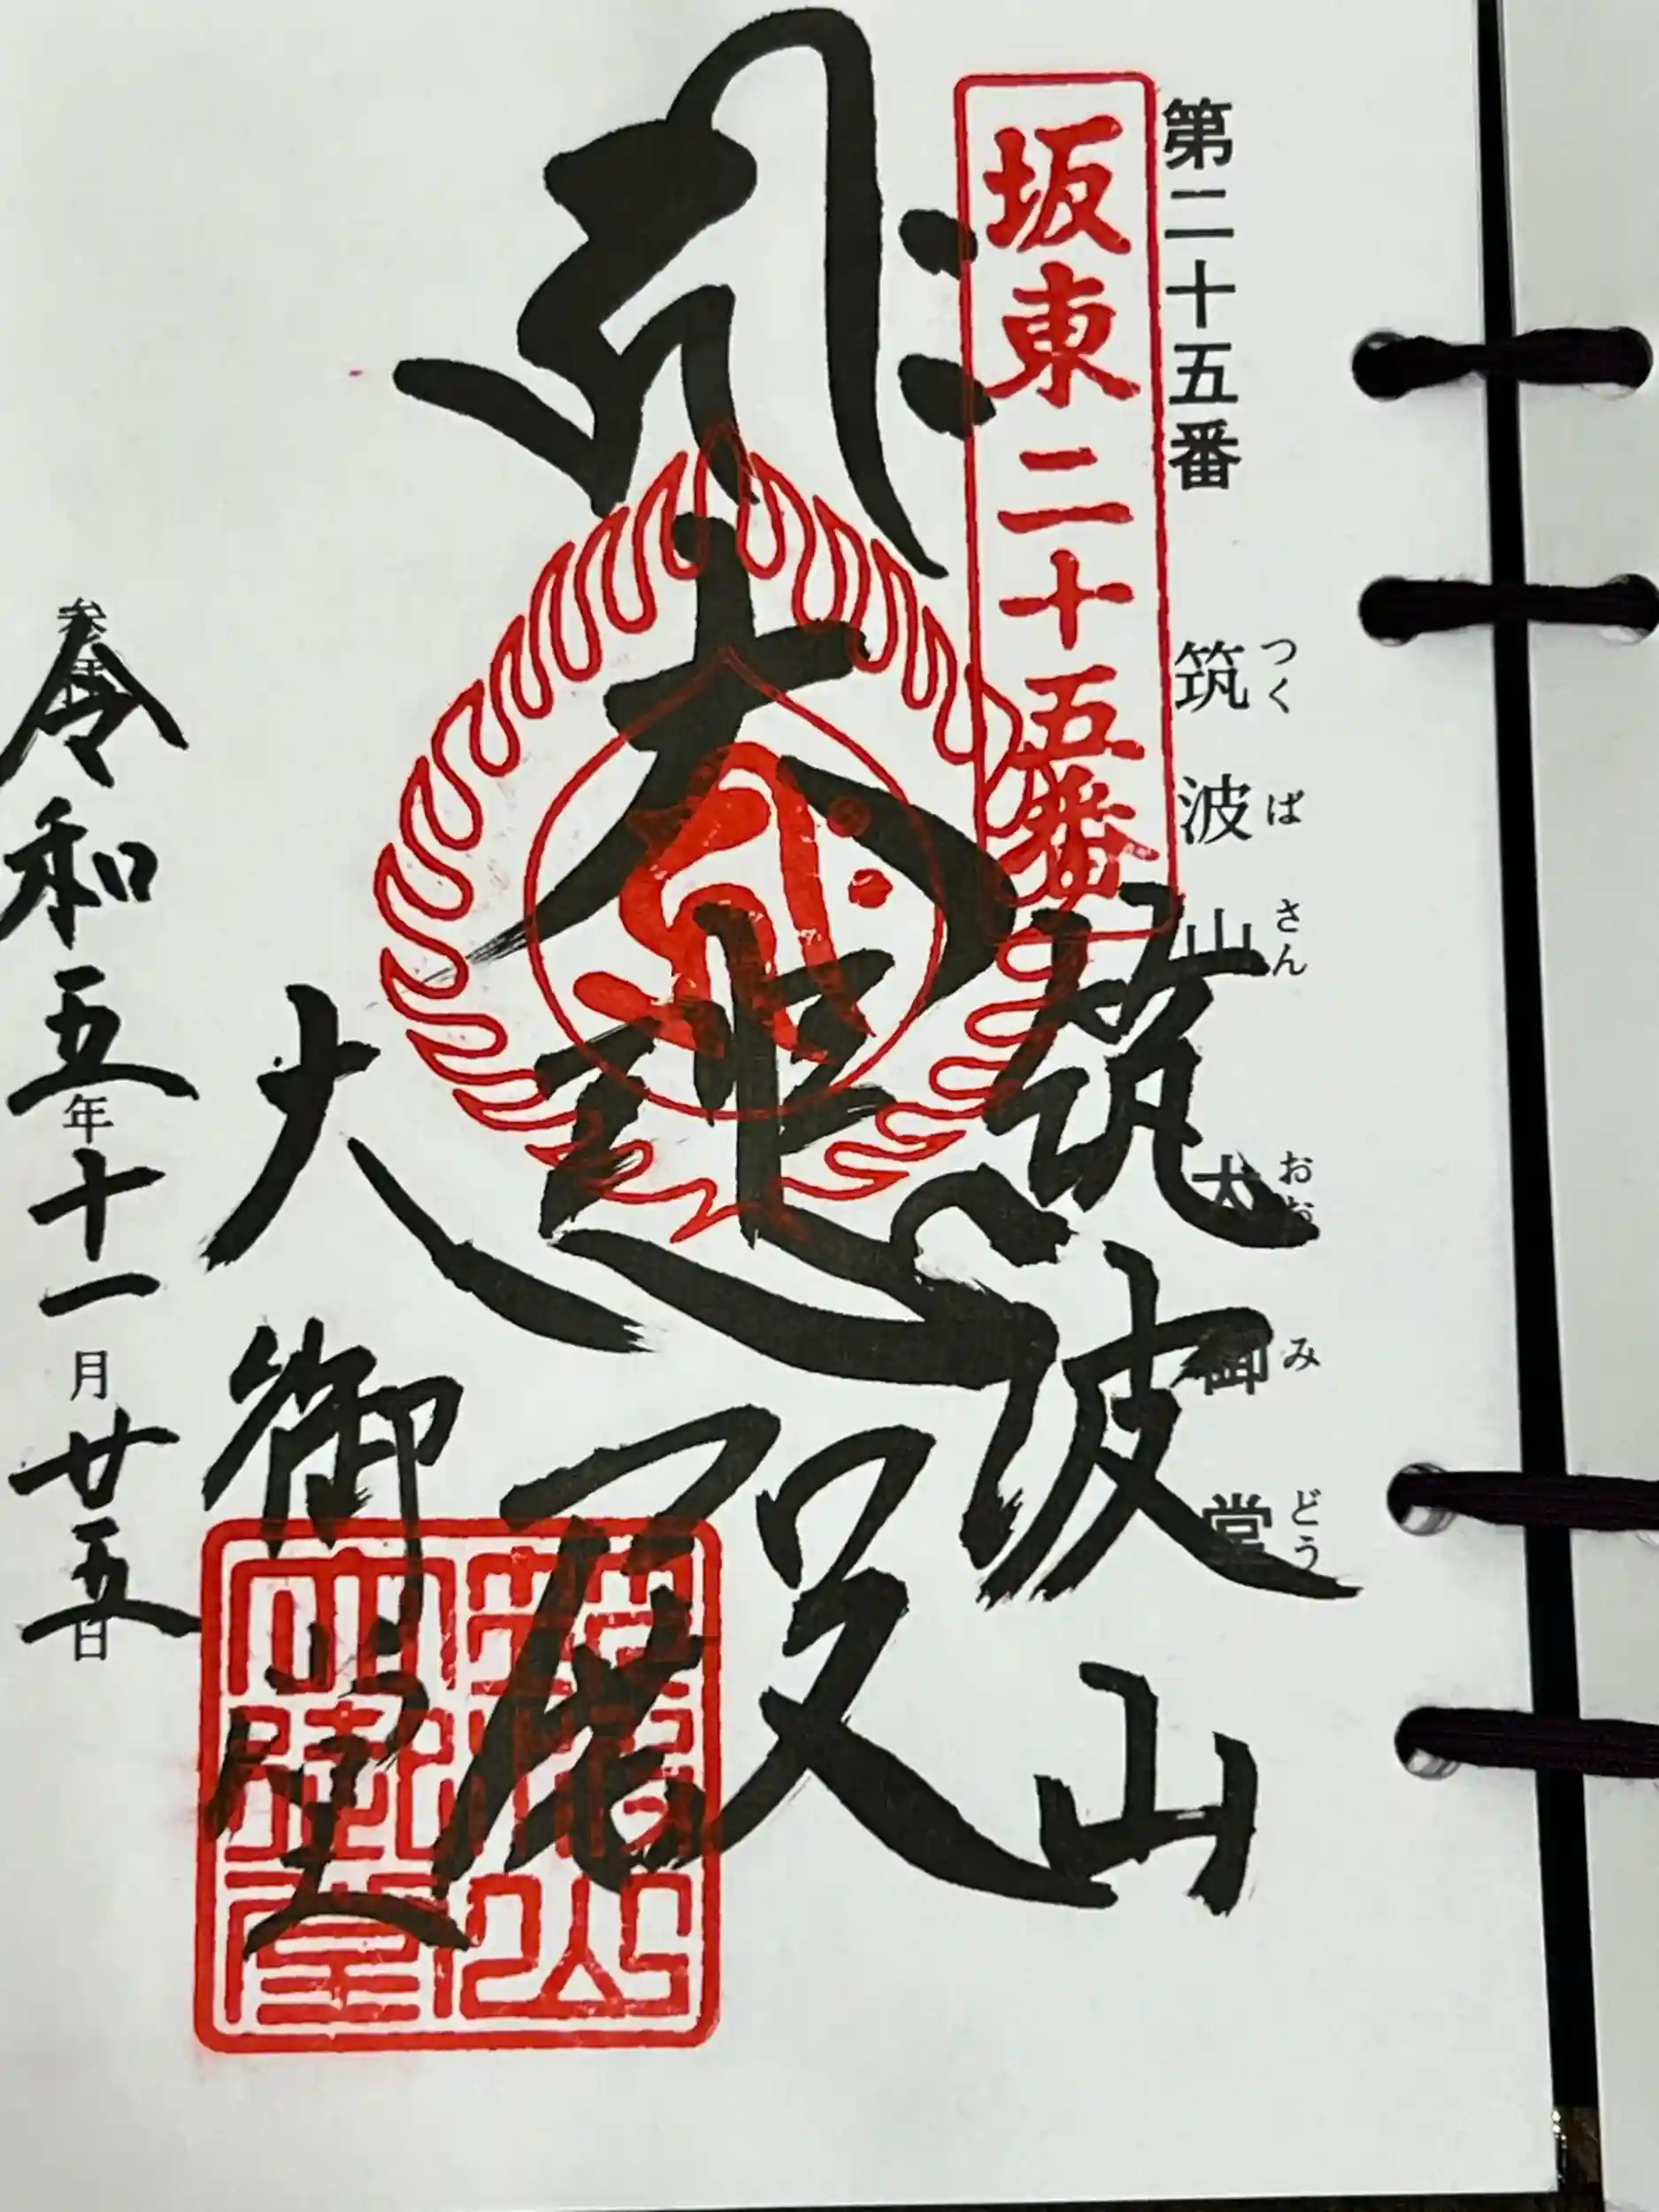 第二十五番
筑波山 大御堂
つく ば さん おお み どう
坂東二十五番
筑波山
大悲殿
大御堂
令和五年十一月廿五日
筑波山
大御堂